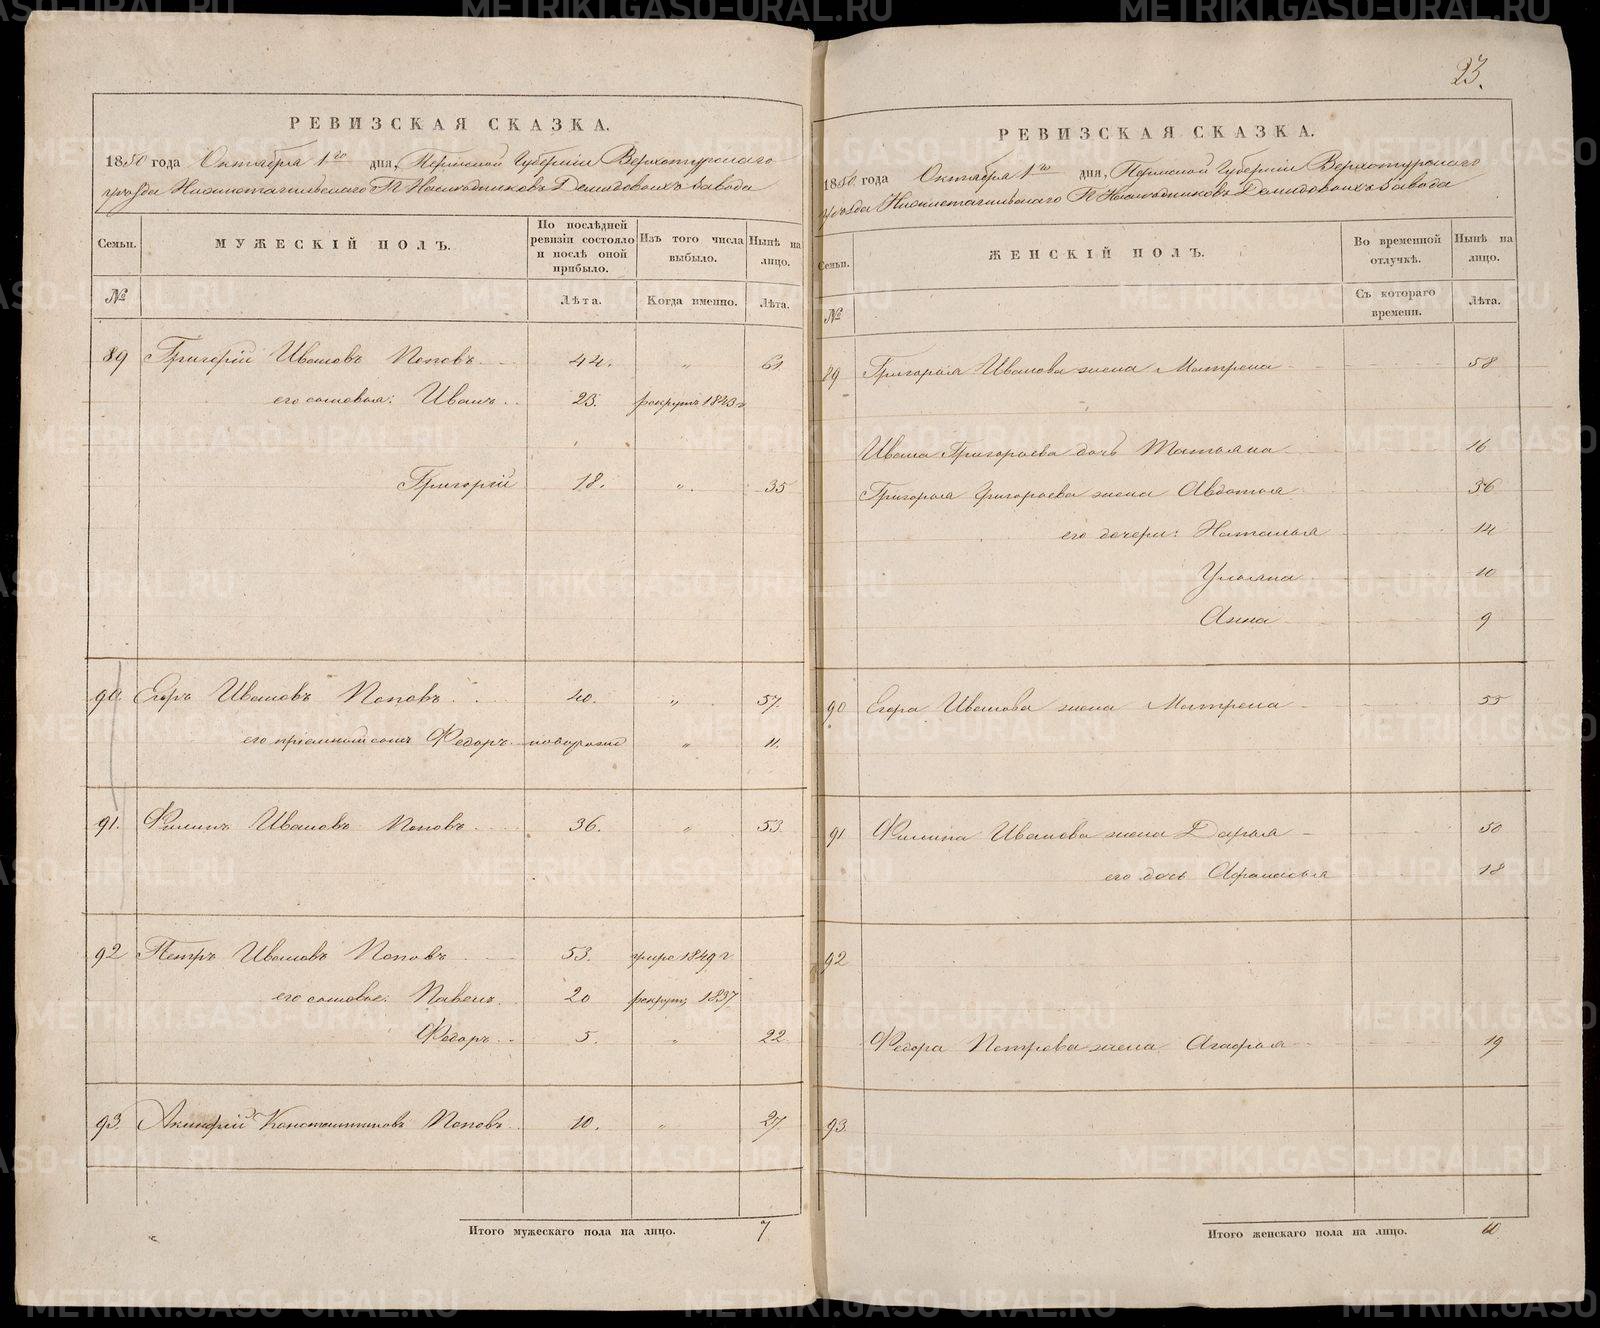 23.
РЕВИЗСКАЯ СКАЗКА.
1850 года Октября 1го дня, Пермской Губернiи Верхотурскаго
уѣзда Нижнетагильскаго Г.г. Наслѣдниковъ Демидовыхъ завода
Семьи. МУЖЕСКIЙ ПОЛЪ. По послѣдней ревизiи состояло и послѣ оной прибыло. Изъ того числа выбыло. Нынѣ на лицо.
№ Лѣта. Когда именно. Лѣта.
89 Григорiй Ивановъ Поповъ 44. " 61
его сыновья: Иванъ 23. рекрутъ 1843 г
Григорiй 18. " 35
90. Егоръ Ивановъ Поповъ 40. " 57.
его прiемный сынъ Федоръ новорожд " 11.
91. Филипъ Ивановъ Поповъ 36. " 53.
92 Петръ Ивановъ Поповъ 53. умре 1849 г
его сыновья: Павелъ 20 рекрут. 1837
Федоръ 5. " 22
93. Акинфiй Константиновъ Поповъ 10. " 27
Итого мужескаго пола на лицо. 7
РЕВИЗСКАЯ СКАЗКА.
1850 года Октября 1го дня, Пермской Губернiи Верхотурскаго
уѣзда Нижнетагильскаго Г.г. Наслѣдниковъ Демидовыхъ завода
Семьи. ЖЕНСКIЙ ПОЛЪ. Во временной отлучкѣ. Нынѣ на лицо.
№ Съ котораго времени. Лѣта.
89 Григорья Иванова жена Матрена 58
Ивана Григорьева дочь Татьяна 16
Григорья Григорьева жена Авдотья 36
его дочери: Наталья 14
Ульяна 10
Анна 9
90 Егора Иванова жена Матрена 55
91 Филипа Иванова жена Дарья 50
его дочь Афанасья 18
92
Федора Петрова жена Агафья 19
93.
Итого женскаго пола на лицо. 10
METRIKI.GASO-URAL.RU